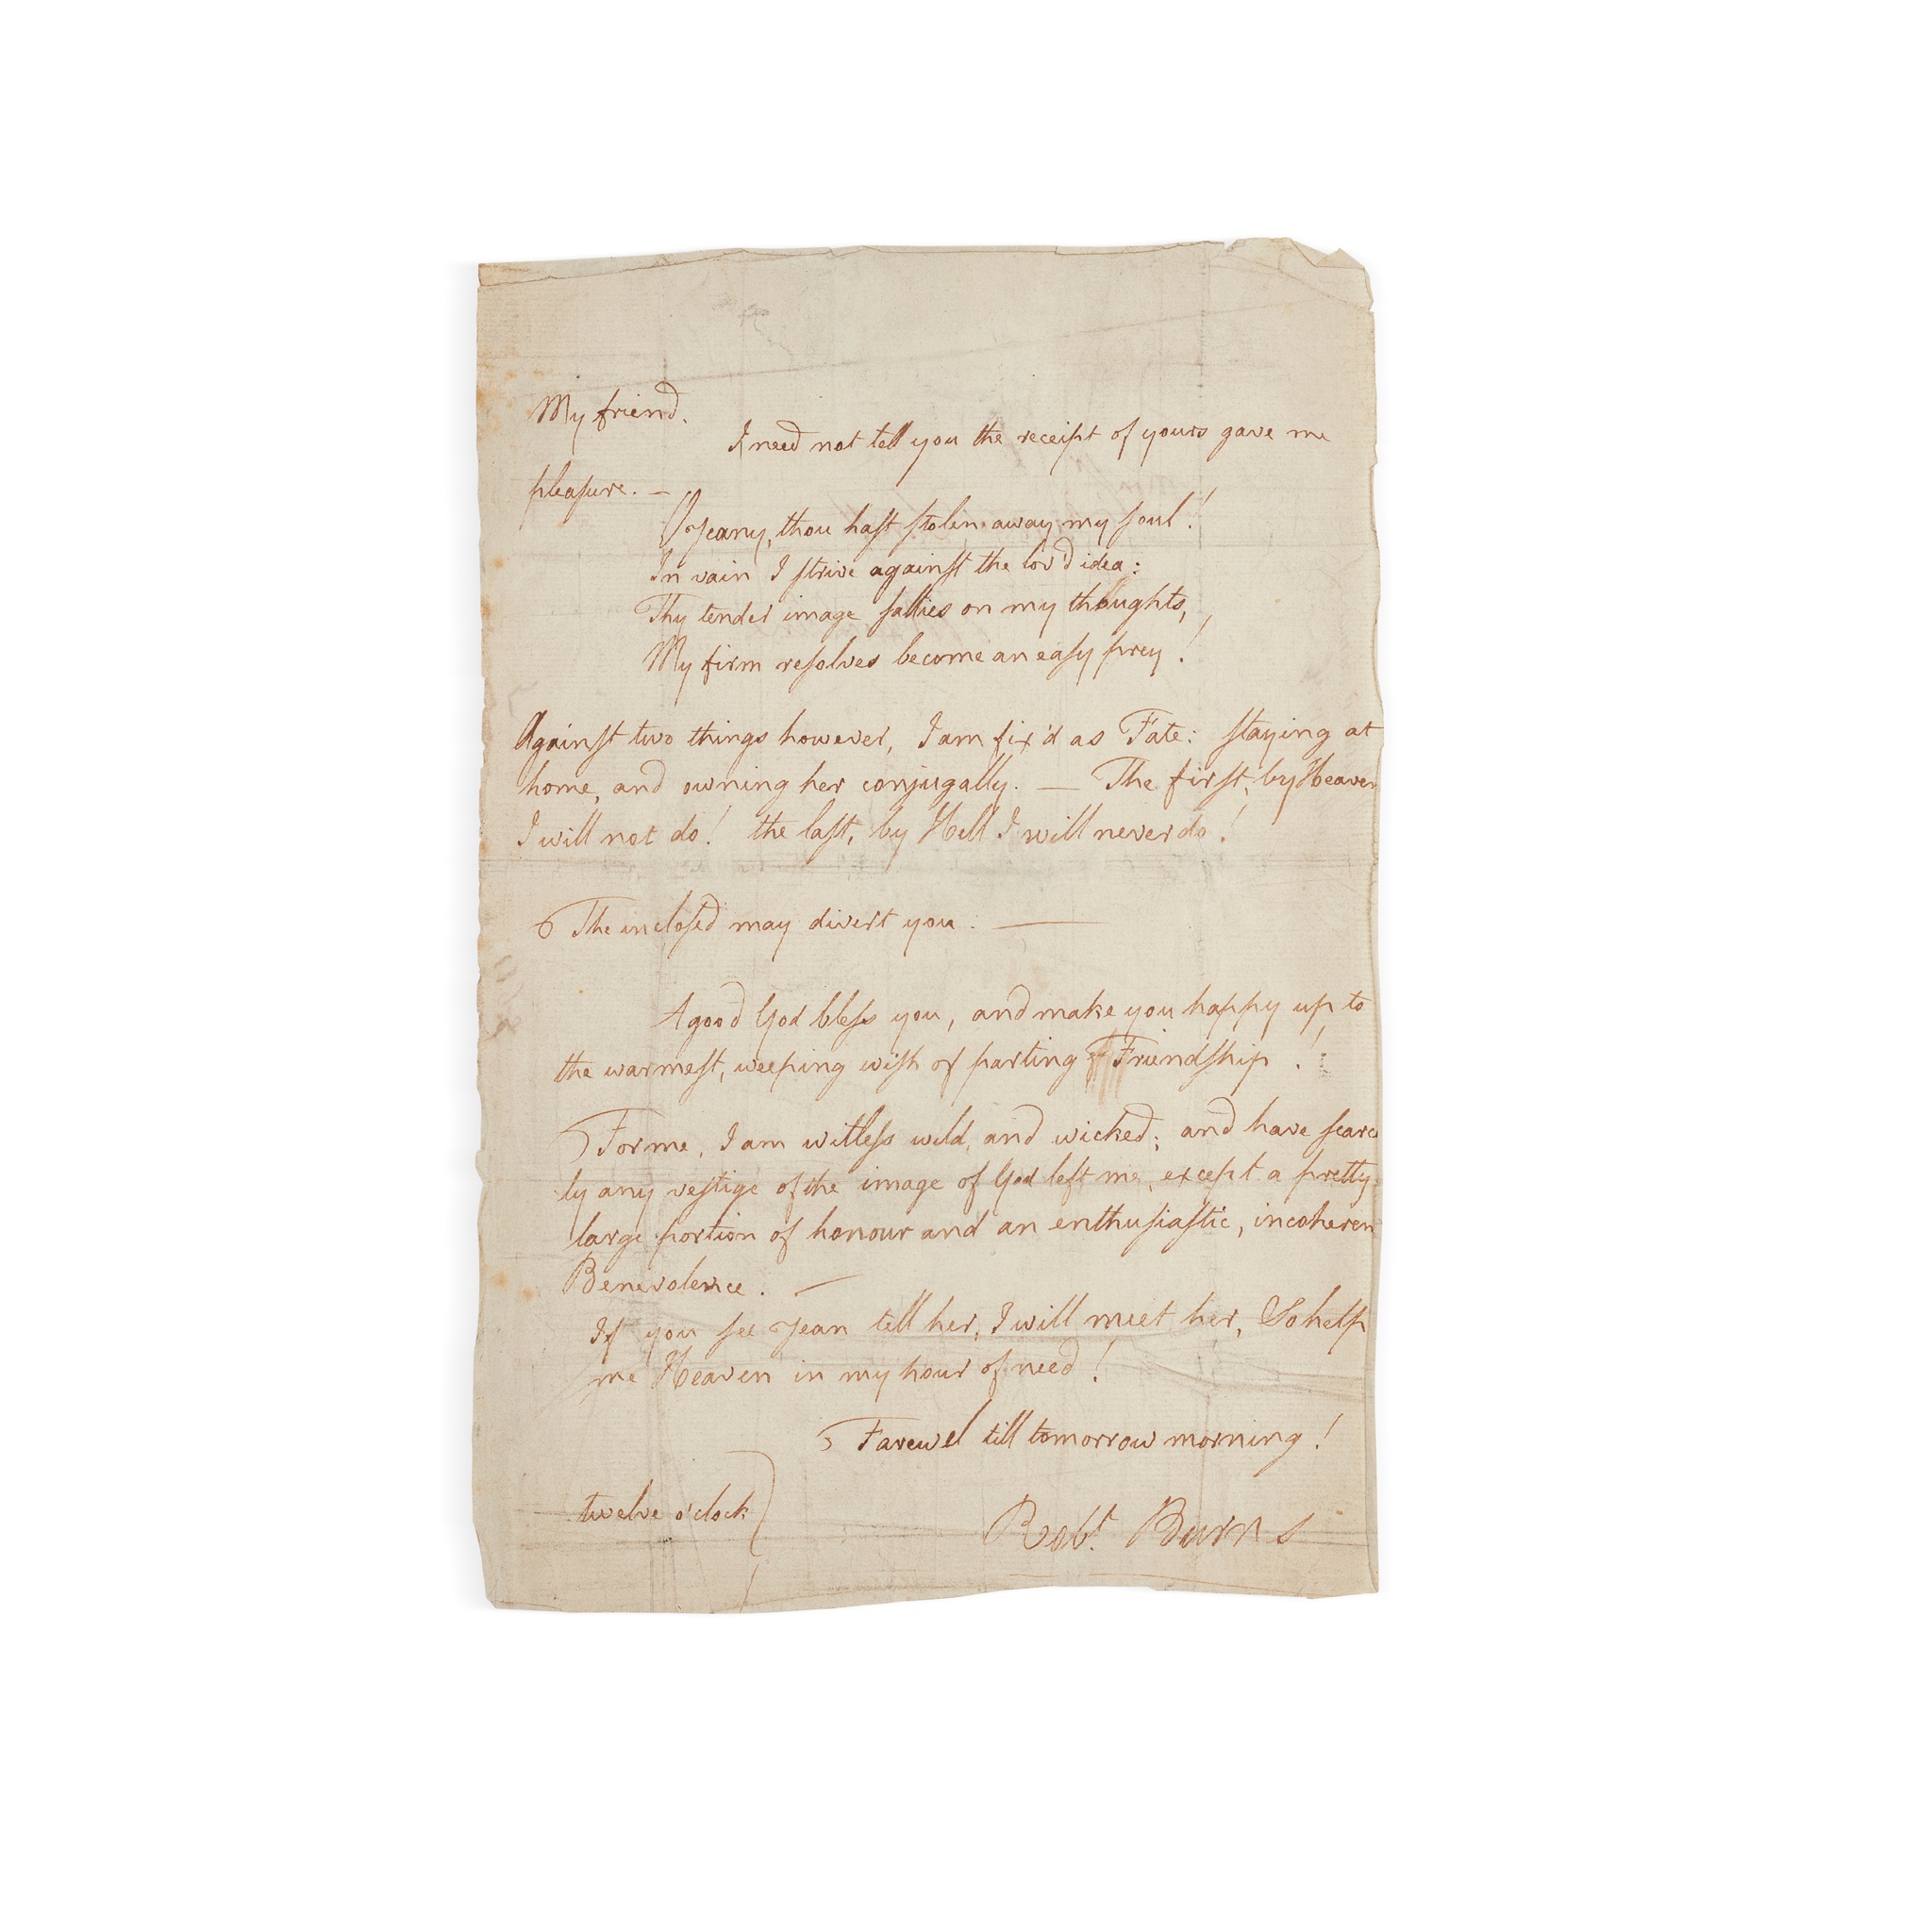 My friend,
I need not tell you the receipt of yours gave me
pleaſure. —
O Jeany, thou haſt ſtolen away my ſoul!
In vain I ſtrive againſt the lov'd idea:
Thy tender image ſallies on my thoughts,
My firm reſolves become an eaſy prey!
Againſt two things however, I am fix'd as Fate: ſtaying at
home, and owning her conjugally. — The firſt, by Heaven
I will not do! the laſt, by Hell I will never do!
The incloſed may divert you. —
A good God bleſs you, and make you happy up to
the warmeſt, weeping wiſh of parting Friendſhip!
For me, I am witleſs wild, and wicked; and have ſcarce
ly any veſtige of the image of God left me, except a pretty
large portion of honour and an enthuſiaſtic, incoheren
Benevolence. —
If you ſee Jean tell her, I will meet her, So help
me Heaven in my hour of need!
Farewel till tomorrow morning!
twelve o'clock
Robt. Burns